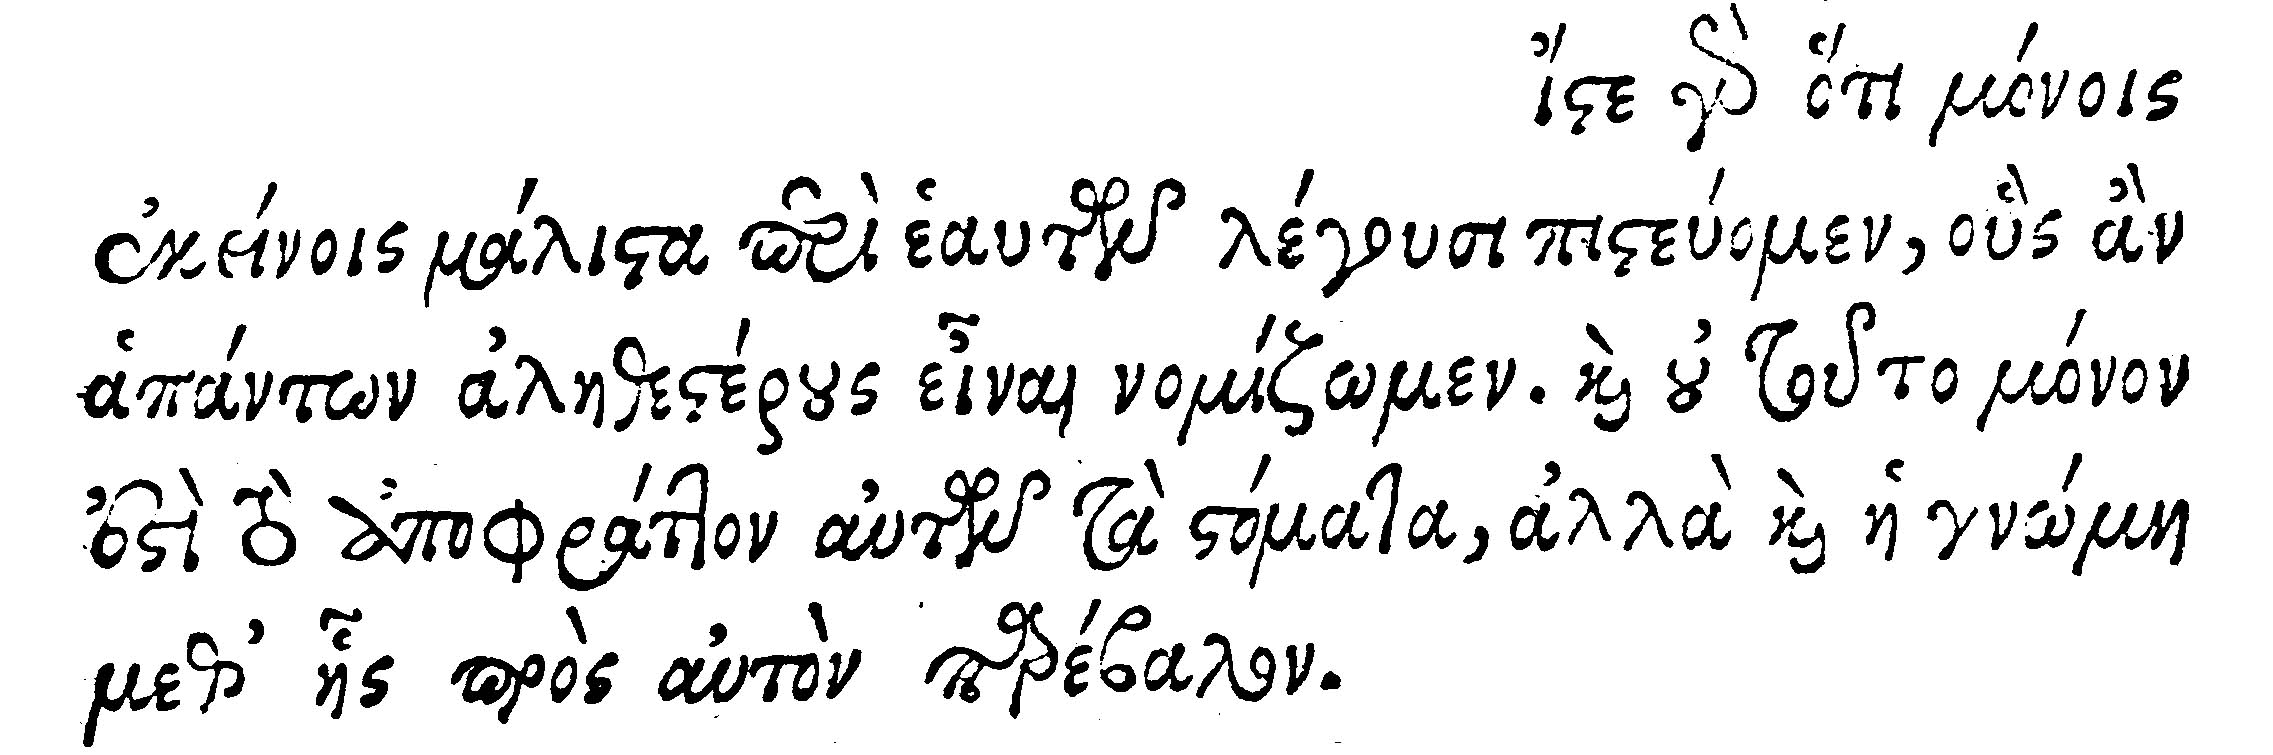 ἴστε γὰρ ὅτι μόνοις
ἐκείνοις μάλιστα περὶ ἑαυτῶν λέγουσι πιστεύομεν, οὓς ἂν
ἁπάντων ἀληθεστέρους εἶναι νομίζωμεν. καὶ οὐ τοῦτο μόνον
ἐστὶ τὸ ἀποφράττον αὐτῶν τὰ στόματα, ἀλλὰ καὶ ἡ γνώμη
μεθ' ἧς πρὸς αὐτὸν παρέβαλον.